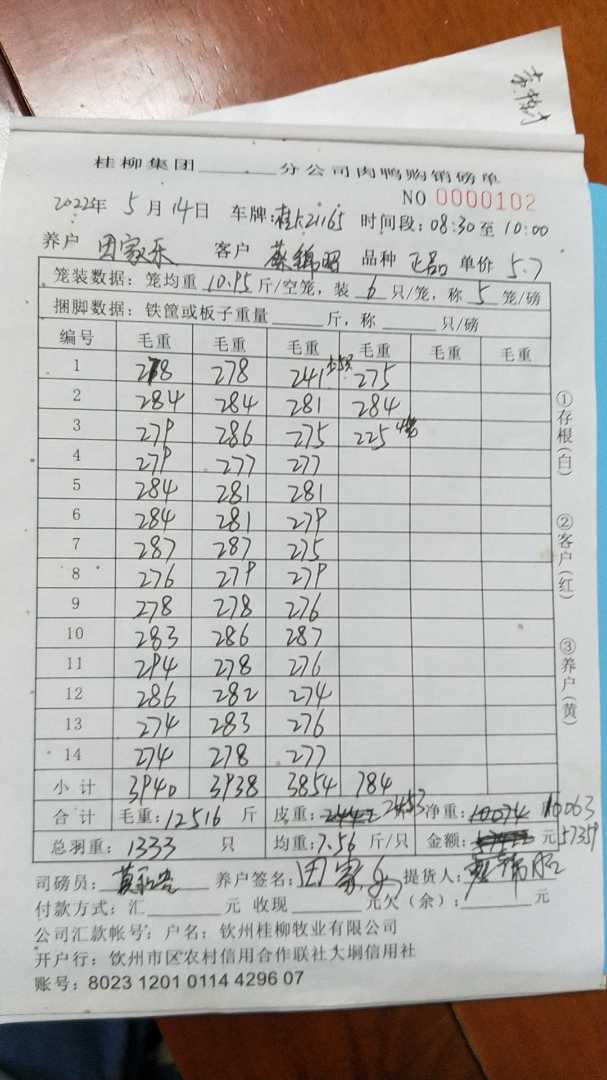 桂柳集团______分公司肉鸭购销磅单
NO 0000102
2022年 5月14日 车牌:桂K21165 时间段:08:30至10:00
养户 田家乐 客户 蔡锦昭 品种 正品 单价 5.7
笼装数据:笼均重 10.95 斤/空笼,装 6 只/笼,称 5 笼/磅
捆脚数据:铁筐或板子重量______斤,称______只/磅
编号 毛重 毛重 毛重 毛重 毛重 毛重
1 278 278 241 275
2 284 284 281 284
3 279 286 275 225 4笼
4 279 277 277
5 284 281 281
6 284 281 279
7 287 287 275
8 276 279 279
9 278 278 276
10 283 286 287
11 294 278 276
12 286 282 274
13 274 283 276
14 274 278 277
小计 3940 3938 3854 784
合计 毛重:12516 斤 皮重:2453 净重:10063
总羽重:1333 只 均重:7.56 斤/只 金额: 元 57359
司磅员: 养户签名:田家乐 提货人:
付款方式:汇______元 收现______元欠(余):______元
公司汇款帐号:户名:钦州桂柳牧业有限公司
开户行:钦州市区农村信用合作联社大垌信用社
账号:8023 1201 0114 4296 07
①存根(白)
②客户(红)
③养户(黄)